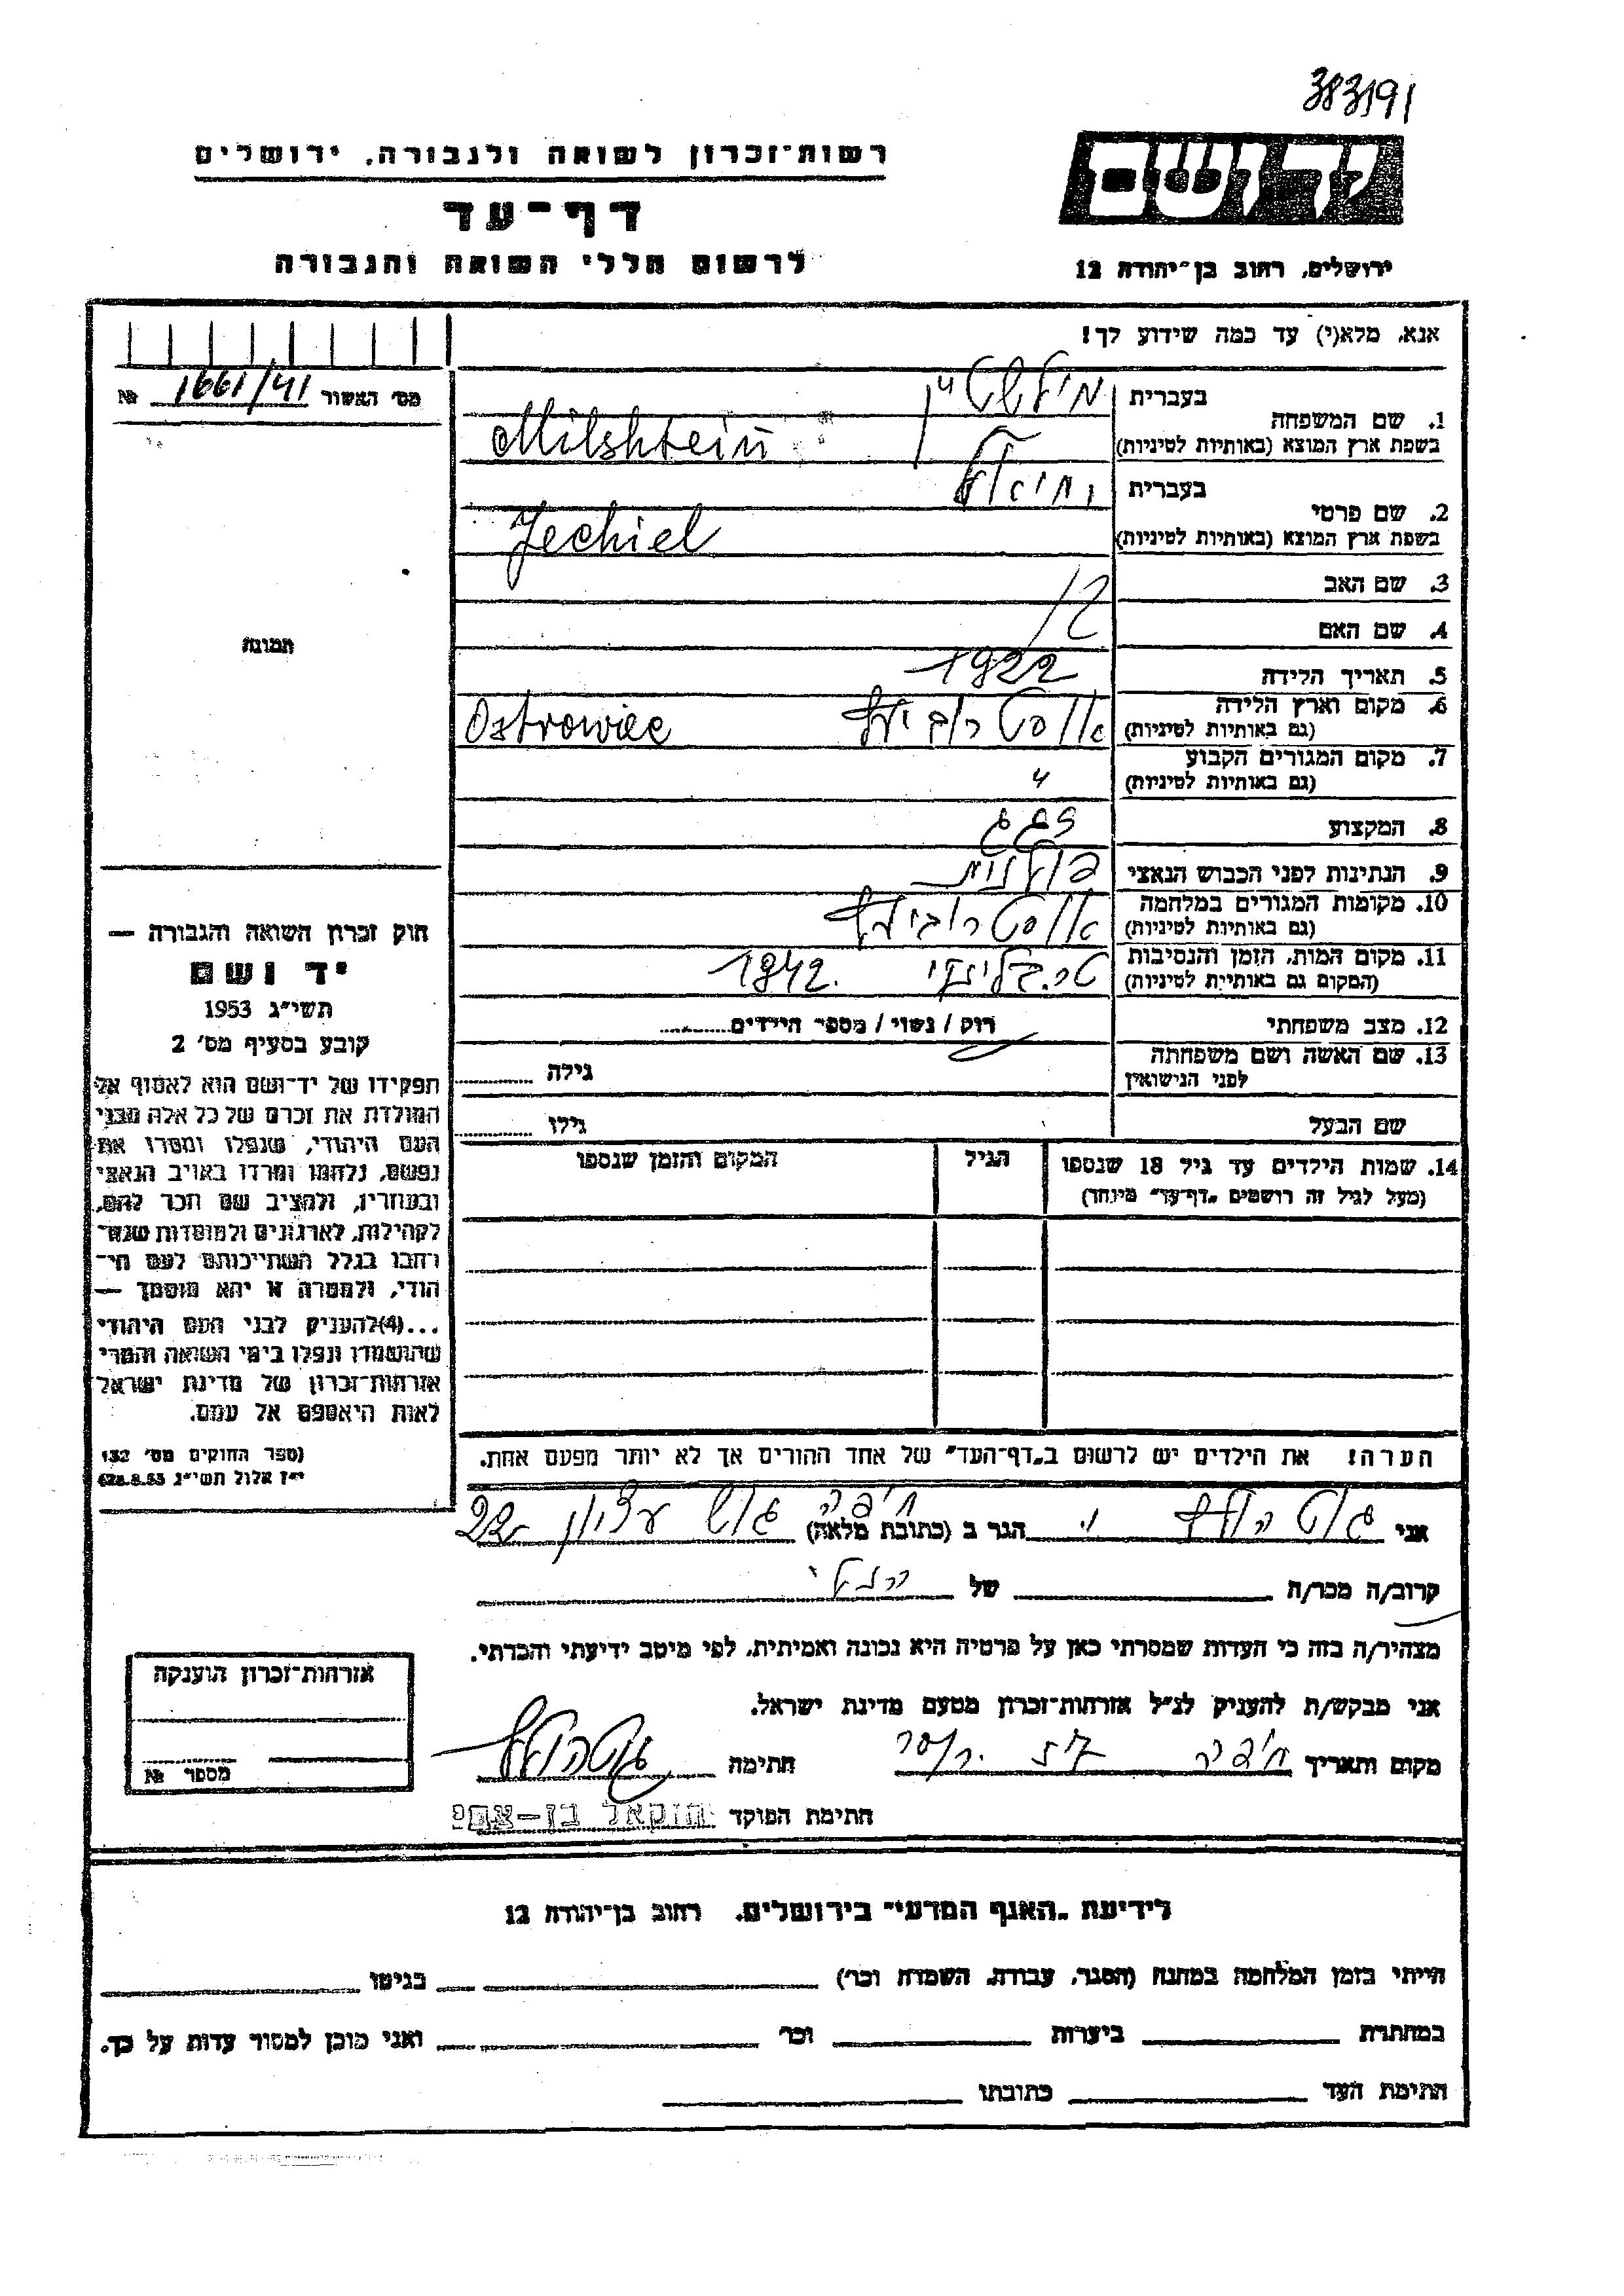 383191
רשות־זכרון לשואה ולגבורה, ירושלים
דף־עד
לרשום חללי השואה והגבורה
יד ושם
ירושלים, רחוב בן־יהודה 12
אנא, מלא(י) עד כמה שידוע לך!
מס' האשור 1661/41 №
תמונה
1. שם המשפחה
בעברית מילשטיין
בשפת ארץ המוצא (באותיות לטיניות) Milshtein
2. שם פרטי
בעברית יחיאל
בשפת ארץ המוצא (באותיות לטיניות) Jechiel
3. שם האב
4. שם האם
5. תאריך הלידה 1922
6. מקום וארץ הלידה אוסטרוביץ Ostrowiec
(גם באותיות לטיניות)
7. מקום המגורים הקבוע "
(גם באותיות לטיניות)
8. המקצוע
9. הנתינות לפני הכבוש הנאצי פולנית
10. מקומות המגורים במלחמה אוסטרוביץ
(גם באותיות לטיניות)
11. מקום המות, הזמן והנסיבות טרבלינקי 1942.
(המקום גם באותיות לטיניות)
12. מצב משפחתי רוק / נשוי / מספר הילדים
13. שם האשה ושם משפחתה גילה
לפני הנישואין
שם הבעל גילו
14. שמות הילדים עד גיל 18 שנספו הגיל המקום והזמן שנספו
(מעל לגיל זה רושמים „דף־עד" מיוחד)
הערה! את הילדים יש לרשום ב„דף־העד" של אחד ההורים אך לא יותר מפעם אחת.
חוק זכרון השואה והגבורה —
יד ושם
תשי"ג 1953
קובע בסעיף מס' 2
תפקידו של יד־ושם הוא לאסוף אל
המולדת את זכרם של כל אלה מבני
העם היהודי, שנפלו ומסרו את
נפשם, נלחמו ומרדו באויב הנאצי
ובעוזריו, ולהציב שם וזכר להם,
לקהילות, לארגונים ולמוסדות שנח־
רבו בגלל השתייכותם לעם הי־
הודי, ולמטרה זו יהא מוסמך —
...(4)להעניק לבני העם היהודי
שהושמדו ונפלו בימי השואה והמרי
אזרחות־זכרון של מדינת ישראל
לאות היאספם אל עמם.
(ספר החוקים מס' 132
י"ז אלול תשי"ג 28.8.53)
אני גוטהולץ י הגר ב (כתובת מלאה) חיפה גוש עציון 22
קרוב/ה מכר/ה של
מצהיר/ה בזה כי העדות שמסרתי כאן על פרטיה היא נכונה ואמיתית, לפי מיטב ידיעתי והכרתי.
אני מבקש/ת להעניק לנ"ל אזרחות־זכרון מטעם מדינת ישראל.
מקום ותאריך חיפה חתימה
חתימת הפוקד
אזרחות־זכרון הוענקה
מספר №
לידיעת „האגף המדעי" בירושלים, רחוב בן־יהודה 12
הייתי בזמן המלחמה במחנה (הסגר, עבודה, השמדה וכו') בגיטו
במחתרת ביערות וכו' ואני מוכן למסור עדות על כך.
חתימת העד כתובתו